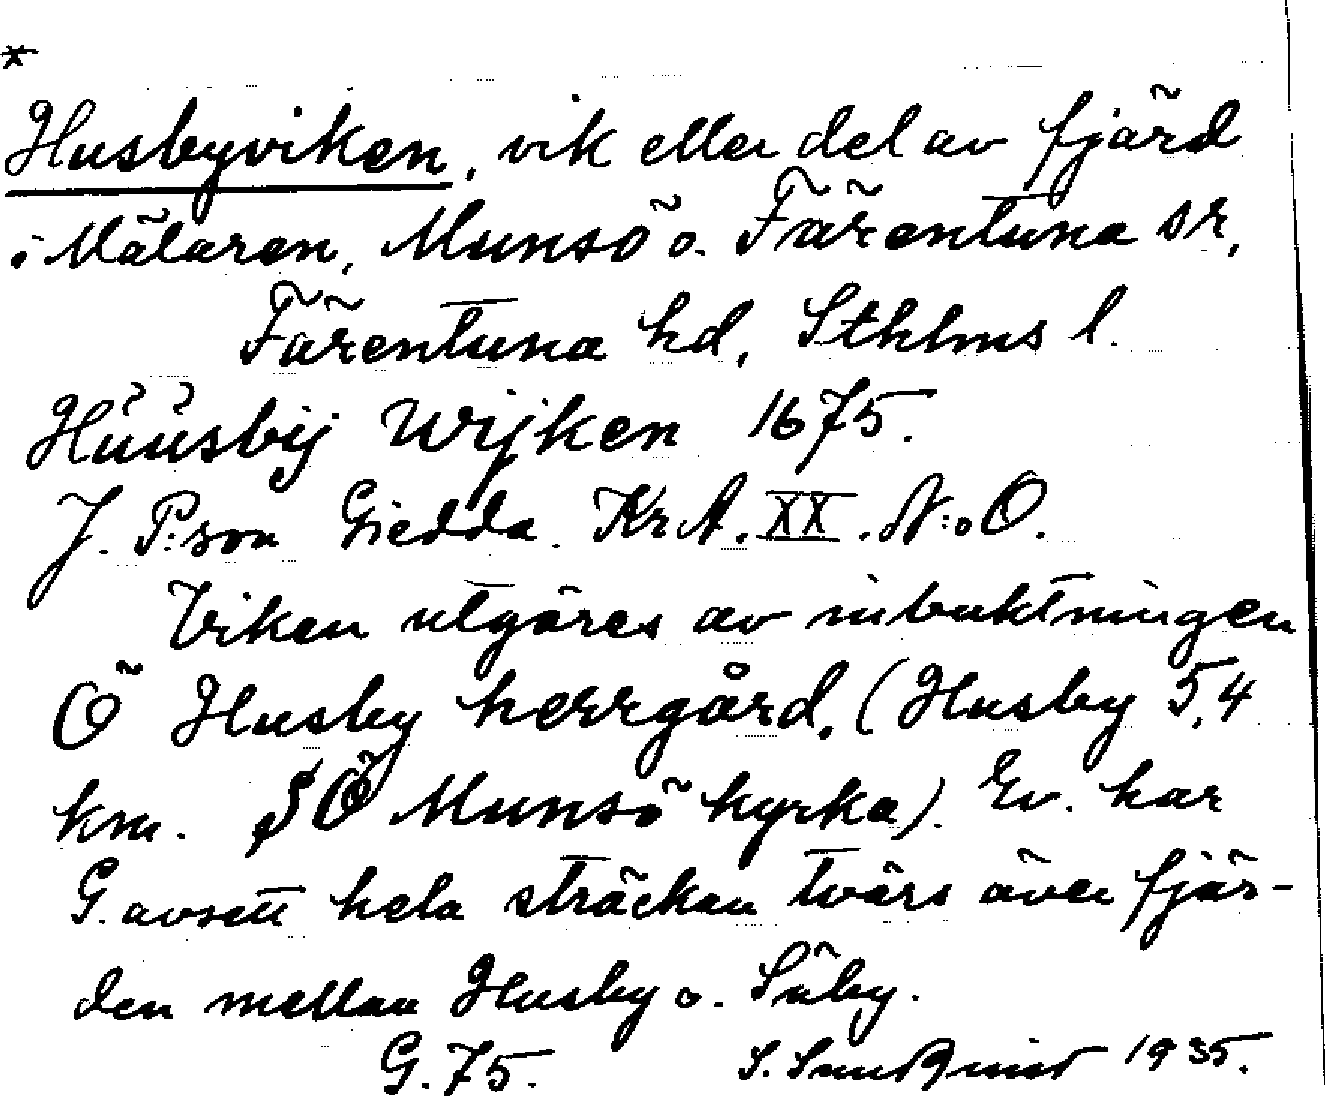 *
Husbyviken, vik eller del av fjärd
i Mälaren, Munsö o. Färentuna sn,
Färentuna hd, Sthlms l.
Hũũsbÿ Wijken 1675.
J. P:son Giedda. KrA. XX. N:o O.
Viken utgöres av inbuktningen
Ö Husby herrgård. (Husby 5,4
km. SÖ Munsö kyrka). Ev. har
G. avsett hela sträckan tvärs över fjär-
den mellan Husby o. Säby.
G. 75. S. Sundquist 1935.